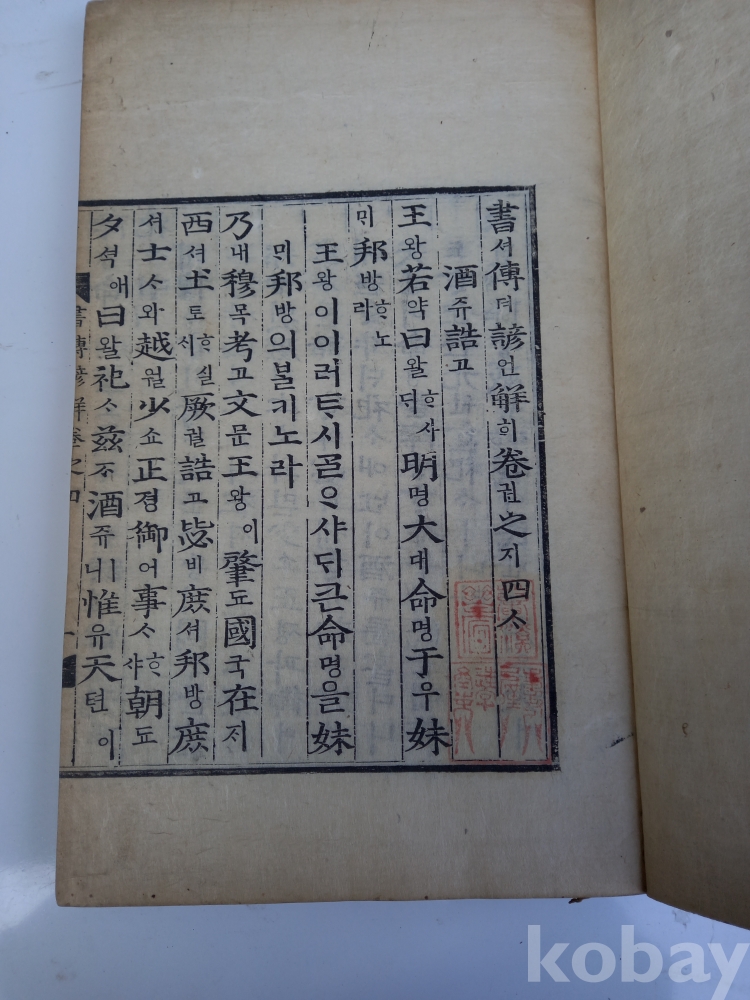 書셔傳뎐諺언解ᄒᆡ卷권之지四ᄉᆞ
酒쥬誥고
王왕若약曰왈ᄒᆞ샤ᄃᆡ明명大대命명于우妹
ᄆᆡ邦방ᄒᆞ노라
王왕이이러ᄐᆞ시ᄀᆞᆯᄋᆞ샤ᄃᆡ큰命명을妹
ᄆᆡ邦방의ᄇᆞᆯ키노라
乃내穆목考고文문王왕이肇됴國국在ᄌᆡ
西셔土토ᄒᆞ실ᄉᆡ厥궐誥고毖비庶셔邦방庶
셔士ᄉᆞ와越월少쇼正졍御어事ᄉᆞᄒᆞ샤朝됴
夕셕애曰왈祀ᄉᆞ玆ᄌᆞ酒쥬니惟유天텬이
書傳諺解卷之四
一
kobay